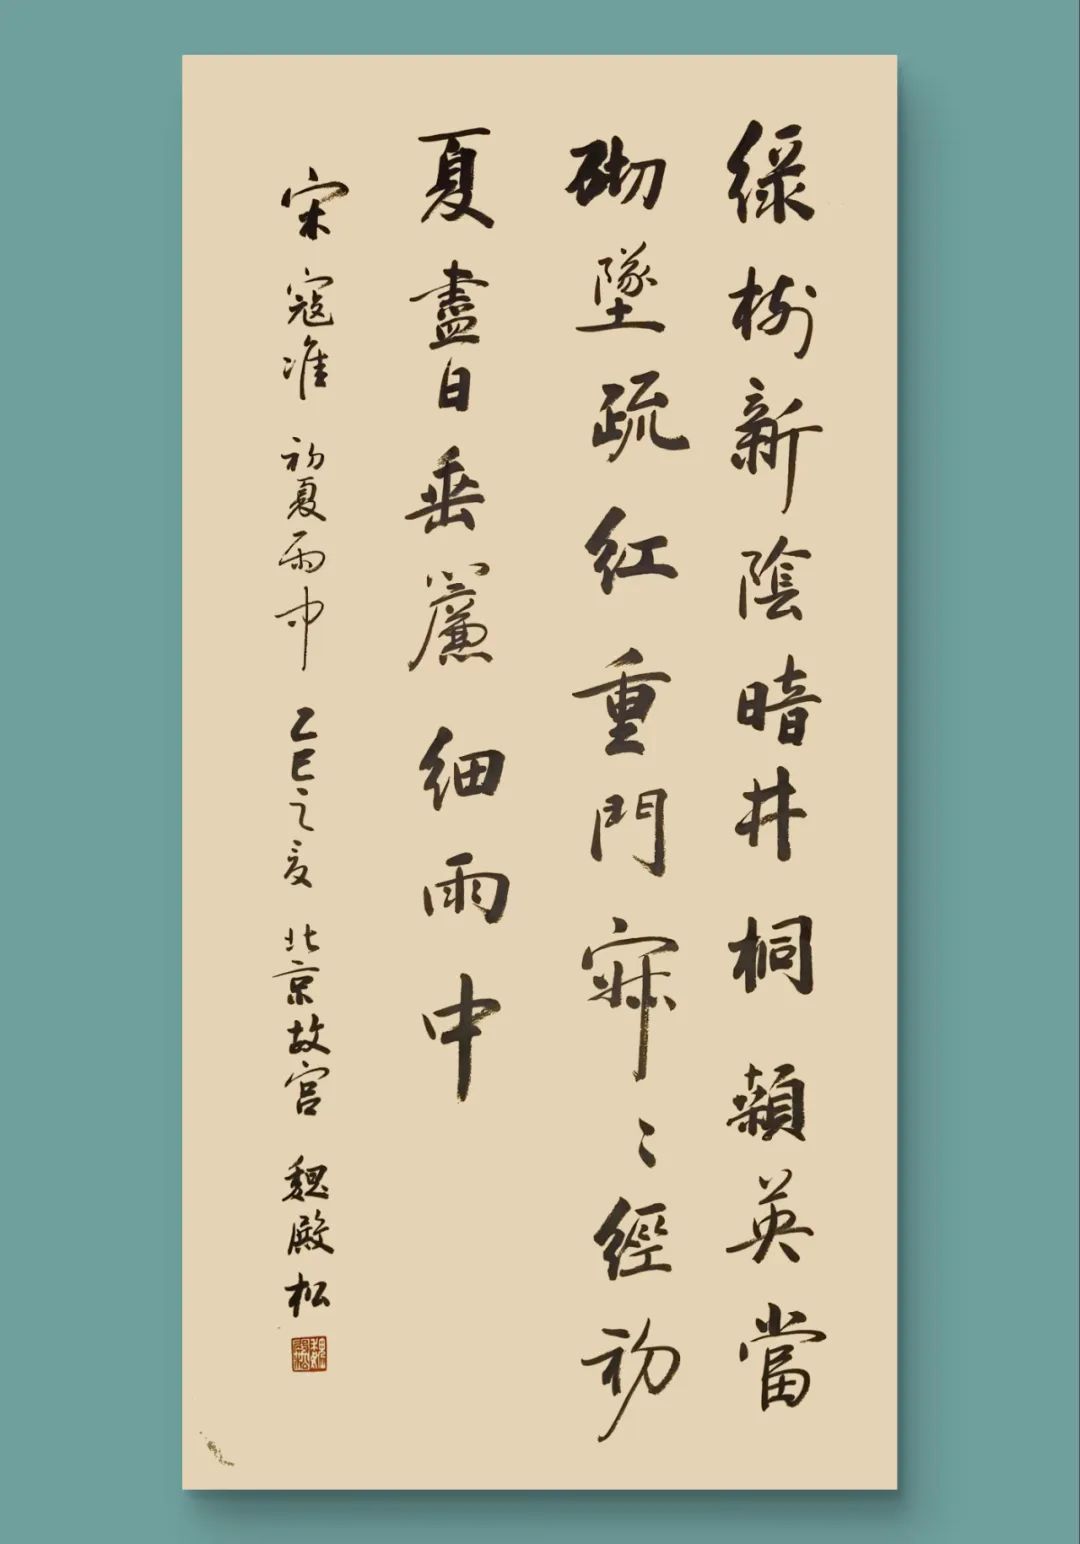 綠樹新陰暗井桐頳英當
砌墜疏紅重門寂〻經初
夏盡日垂簾細雨中
宋寇准初夏雨中乙巳之夏北京故宫魏殿松